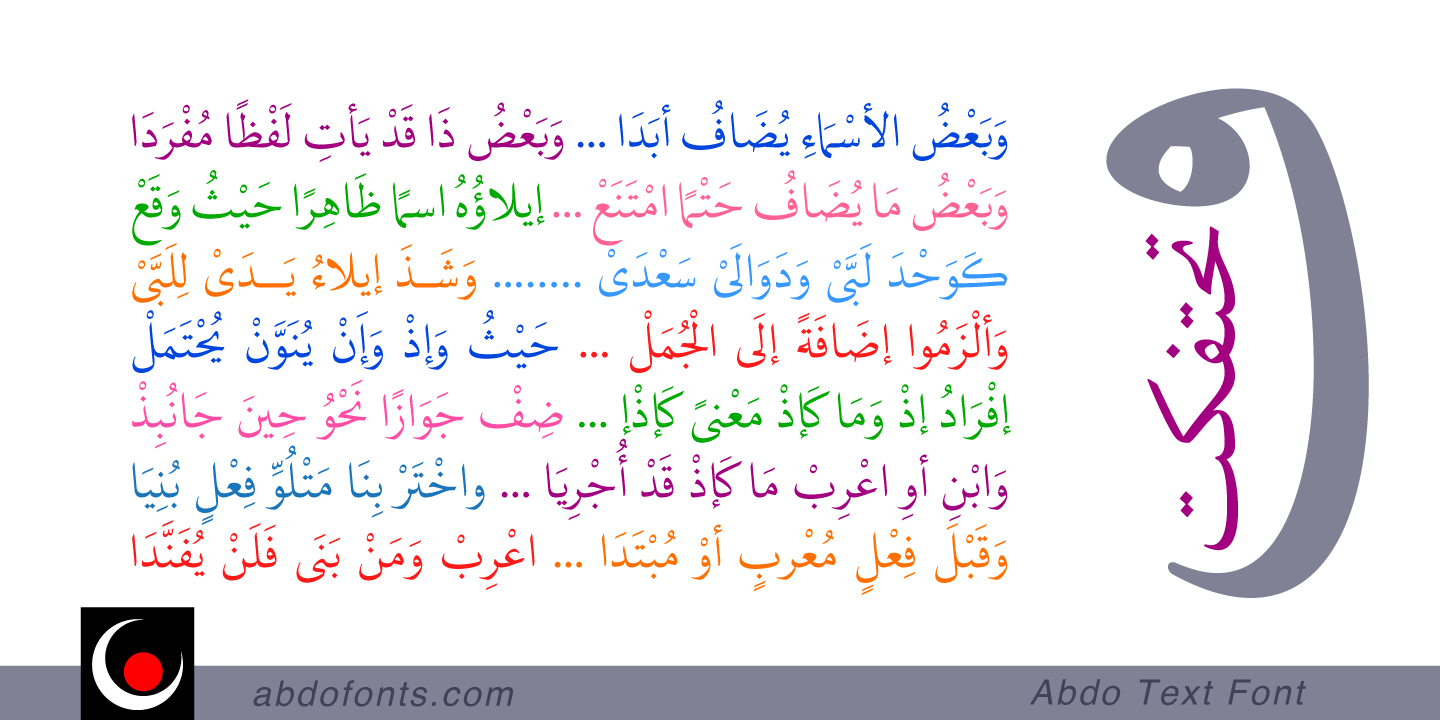 وَبَعْضُ الأسْمَاءِ يُضَافُ أبَدَا ... وَبَعْضُ ذَا قَدْ يَأتِ لَفْظًا مُفْرَدَا
وَبَعْضُ مَا يُضَافُ حَتْمًا امْتَنَعْ ... إيلاؤُهُ اسمًا ظَاهِرًا حَيْثُ وَقَعْ
كَوَحْدَ لَبَّىْ وَدَوَالَىْ سَعْدَىْ ........ وَشَــذَ إيلاءُ يَــدَىْ لِلَبَّىْ
وَألْزَمُوا إضَافَةً إلَى الْجُمَلْ ... حَيْثُ وَإذْ وَإَنْ يُنَوَّنْ يُحْتَمَلْ
إفْرَادُ إذْ وَمَا كَإذْ مَعْنىً كَإذْإ ... ضِفْ جَوَازًا نَحْوُ حِينَ جَانُبِذْ
وَابْنِ أوِ اعْرِبْ مَا كَإذْ قَدْ أُجْرِيَا ... واخْتَرْ بِنَا مَتْلُوِّ فِعْلٍ بُنِيَا
وَقَبْلَ فِعْلٍ مُعْربٍ أوْ مُبْتَدَا ... اعْرِبْ وَمَنْ بَنَى فَلَنْ يُفَنَّدَا
و
abdofonts.com
Abdo Text Font